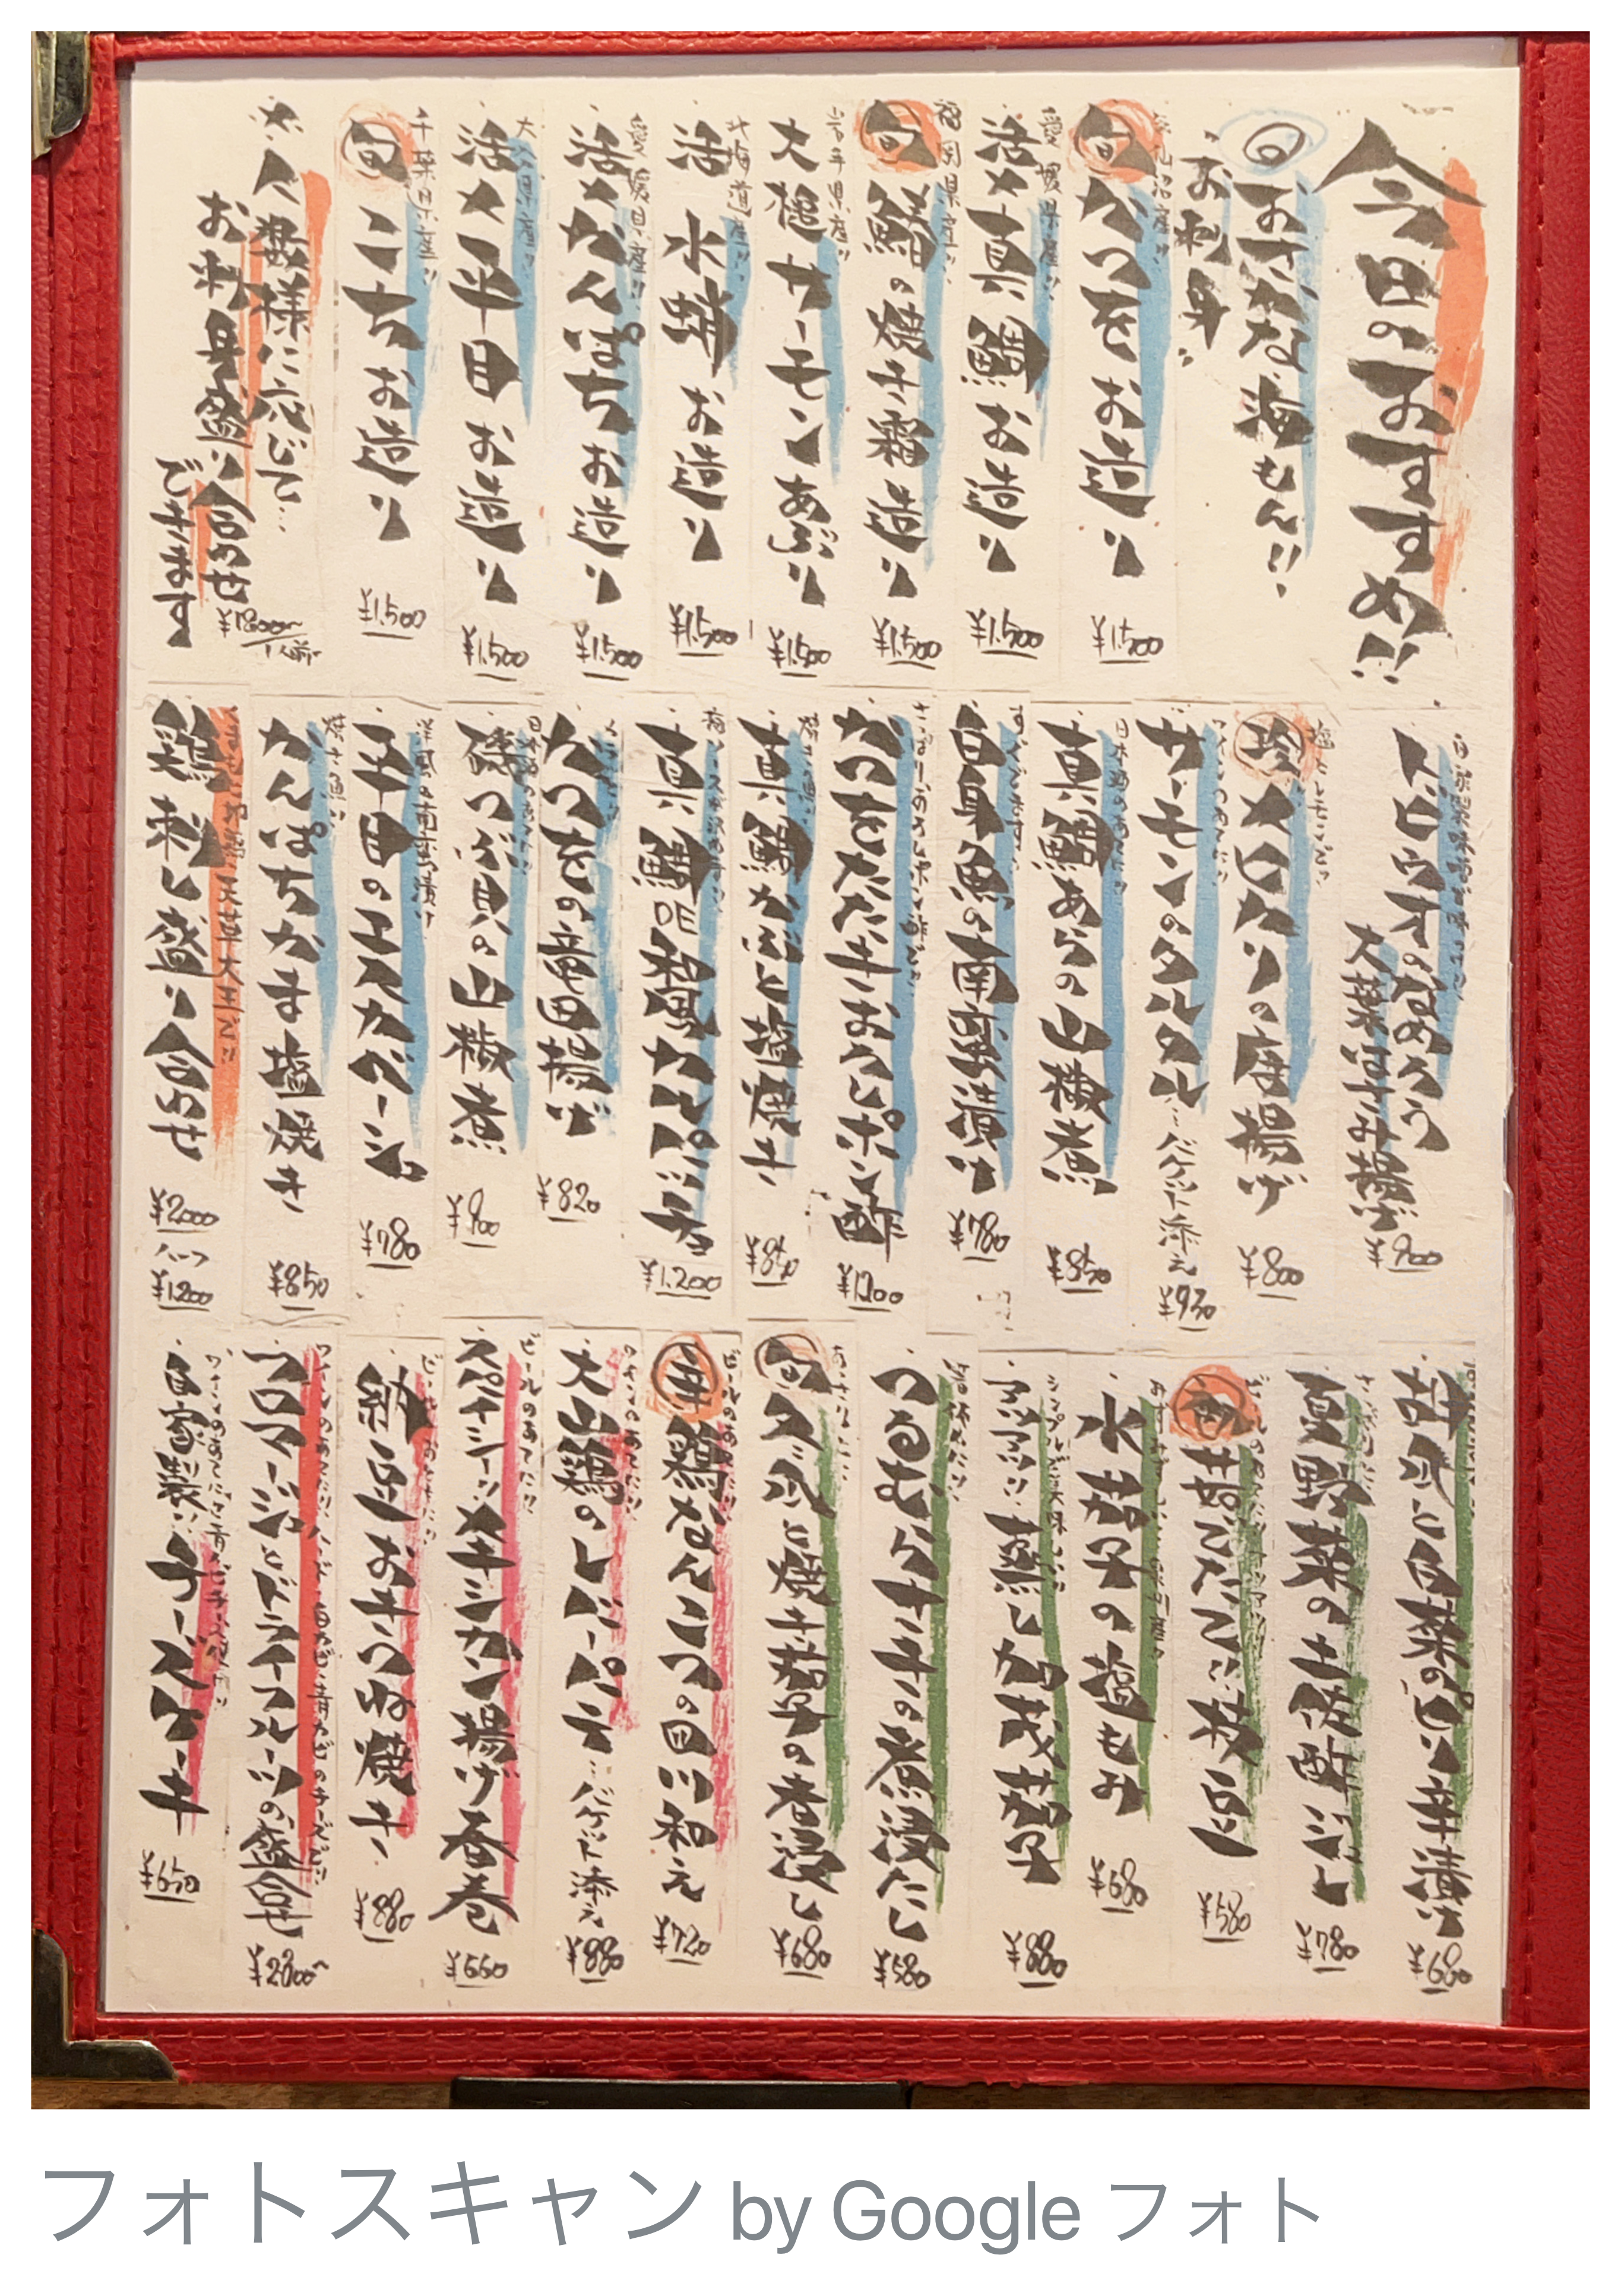 今日のおすすめ!!
おさかな海もん!!
お刺身
旬 かつをお造り
¥1.500
愛媛県産!!
活〆真鯛お造り
¥1.500
福岡県産!!
旬 鰆の焼き霜造り
¥1.500
岩手県産!!
大槌サーモンあぶり
¥1.500
北海道産!!
活 水蛸お造り
¥1.500
愛媛県産!!
活〆かんぱちお造り
¥1.500
活〆平目お造り
¥1.500
千葉県産!!
旬 こちお造り
¥1.500
人数様に応じて…
お刺身盛り合せ
できます
トビウオのなめろう
大葉はさみ揚げ
¥900
珍 メヒカリの唐揚げ
¥800
サーモンのタルタル…バゲット添え
¥930
日本酒のあてに!!
真鯛あらの山椒煮
¥850
白身魚の南蛮漬け
¥780
かつをたたきおろしポン酢
¥1.200
焼き魚!!
真鯛かぶと塩焼き
¥850
真鯛DE和風カルパッチョ
¥1.200
かつをの竜田揚げ
¥820
日本酒のあてに!!
磯つぶ貝の山椒煮
¥900
洋風の南蛮漬け
平目のエスカベーシュ
¥780
焼き魚!!
かんぱちかま塩焼き
¥850
天草大王で!!
鶏刺し盛り合せ
¥2.000
ハーフ
¥1.200
胡瓜と白菜のピリ辛漬け
¥680
夏野菜の土佐酢ジュレ
¥780
茹でたて!!枝豆
¥580
水茄子の塩もみ
¥680
アツアツ!!蒸し加茂茄子
¥880
つるむらさきの煮浸たし
¥580
旬 冬瓜と焼き茄子の煮浸し
¥680
鶏なんこつの四川和え
¥720
ワインのあてに!!
大山鶏のレバーパテ…バゲット添え
¥880
ビールのあてに!!
スパイシー!!メキシカン揚げ春巻
¥660
納豆おきつね焼き
¥880
フロマージュとドライフルーツの盛合せ
¥2300~
自家製!!チーズケーキ
¥650
フォトスキャン by Google フォト